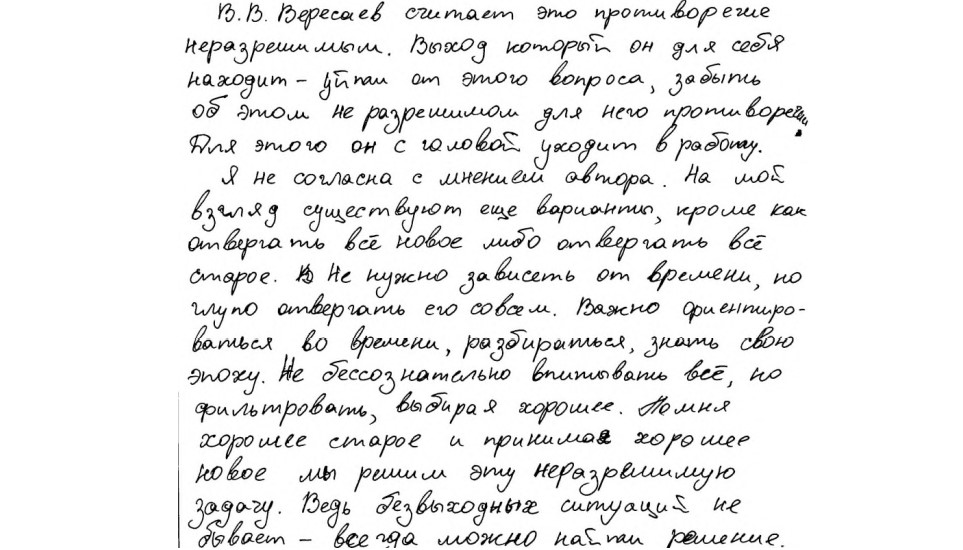 В.В. Вересаев считает это противоречие
неразрешимым. Выход который он для себя
находит – уйти от этого вопроса, забыть
об этом не разрешимом для него противоречии
Для этого он с головой уходит в работу.
Я не согласна с мнением автора. На мой
взгляд существуют еще варианты, кроме как
отвергать всё новое либо отвергать всё
старое. Не нужно зависеть от времени, но
глупо отвергать его совсем. Важно ориентиро-
ваться во времени, разбираться, знать свою
эпоху. Не бессознательно впитывать всё, но
фильтровать, выбирая хорошее. Помня
хорошее старое и принимая хорошее
новое мы решим эту неразрешимую
задачу. Ведь безвыходных ситуаций не
бывает – всегда можно найти решение.